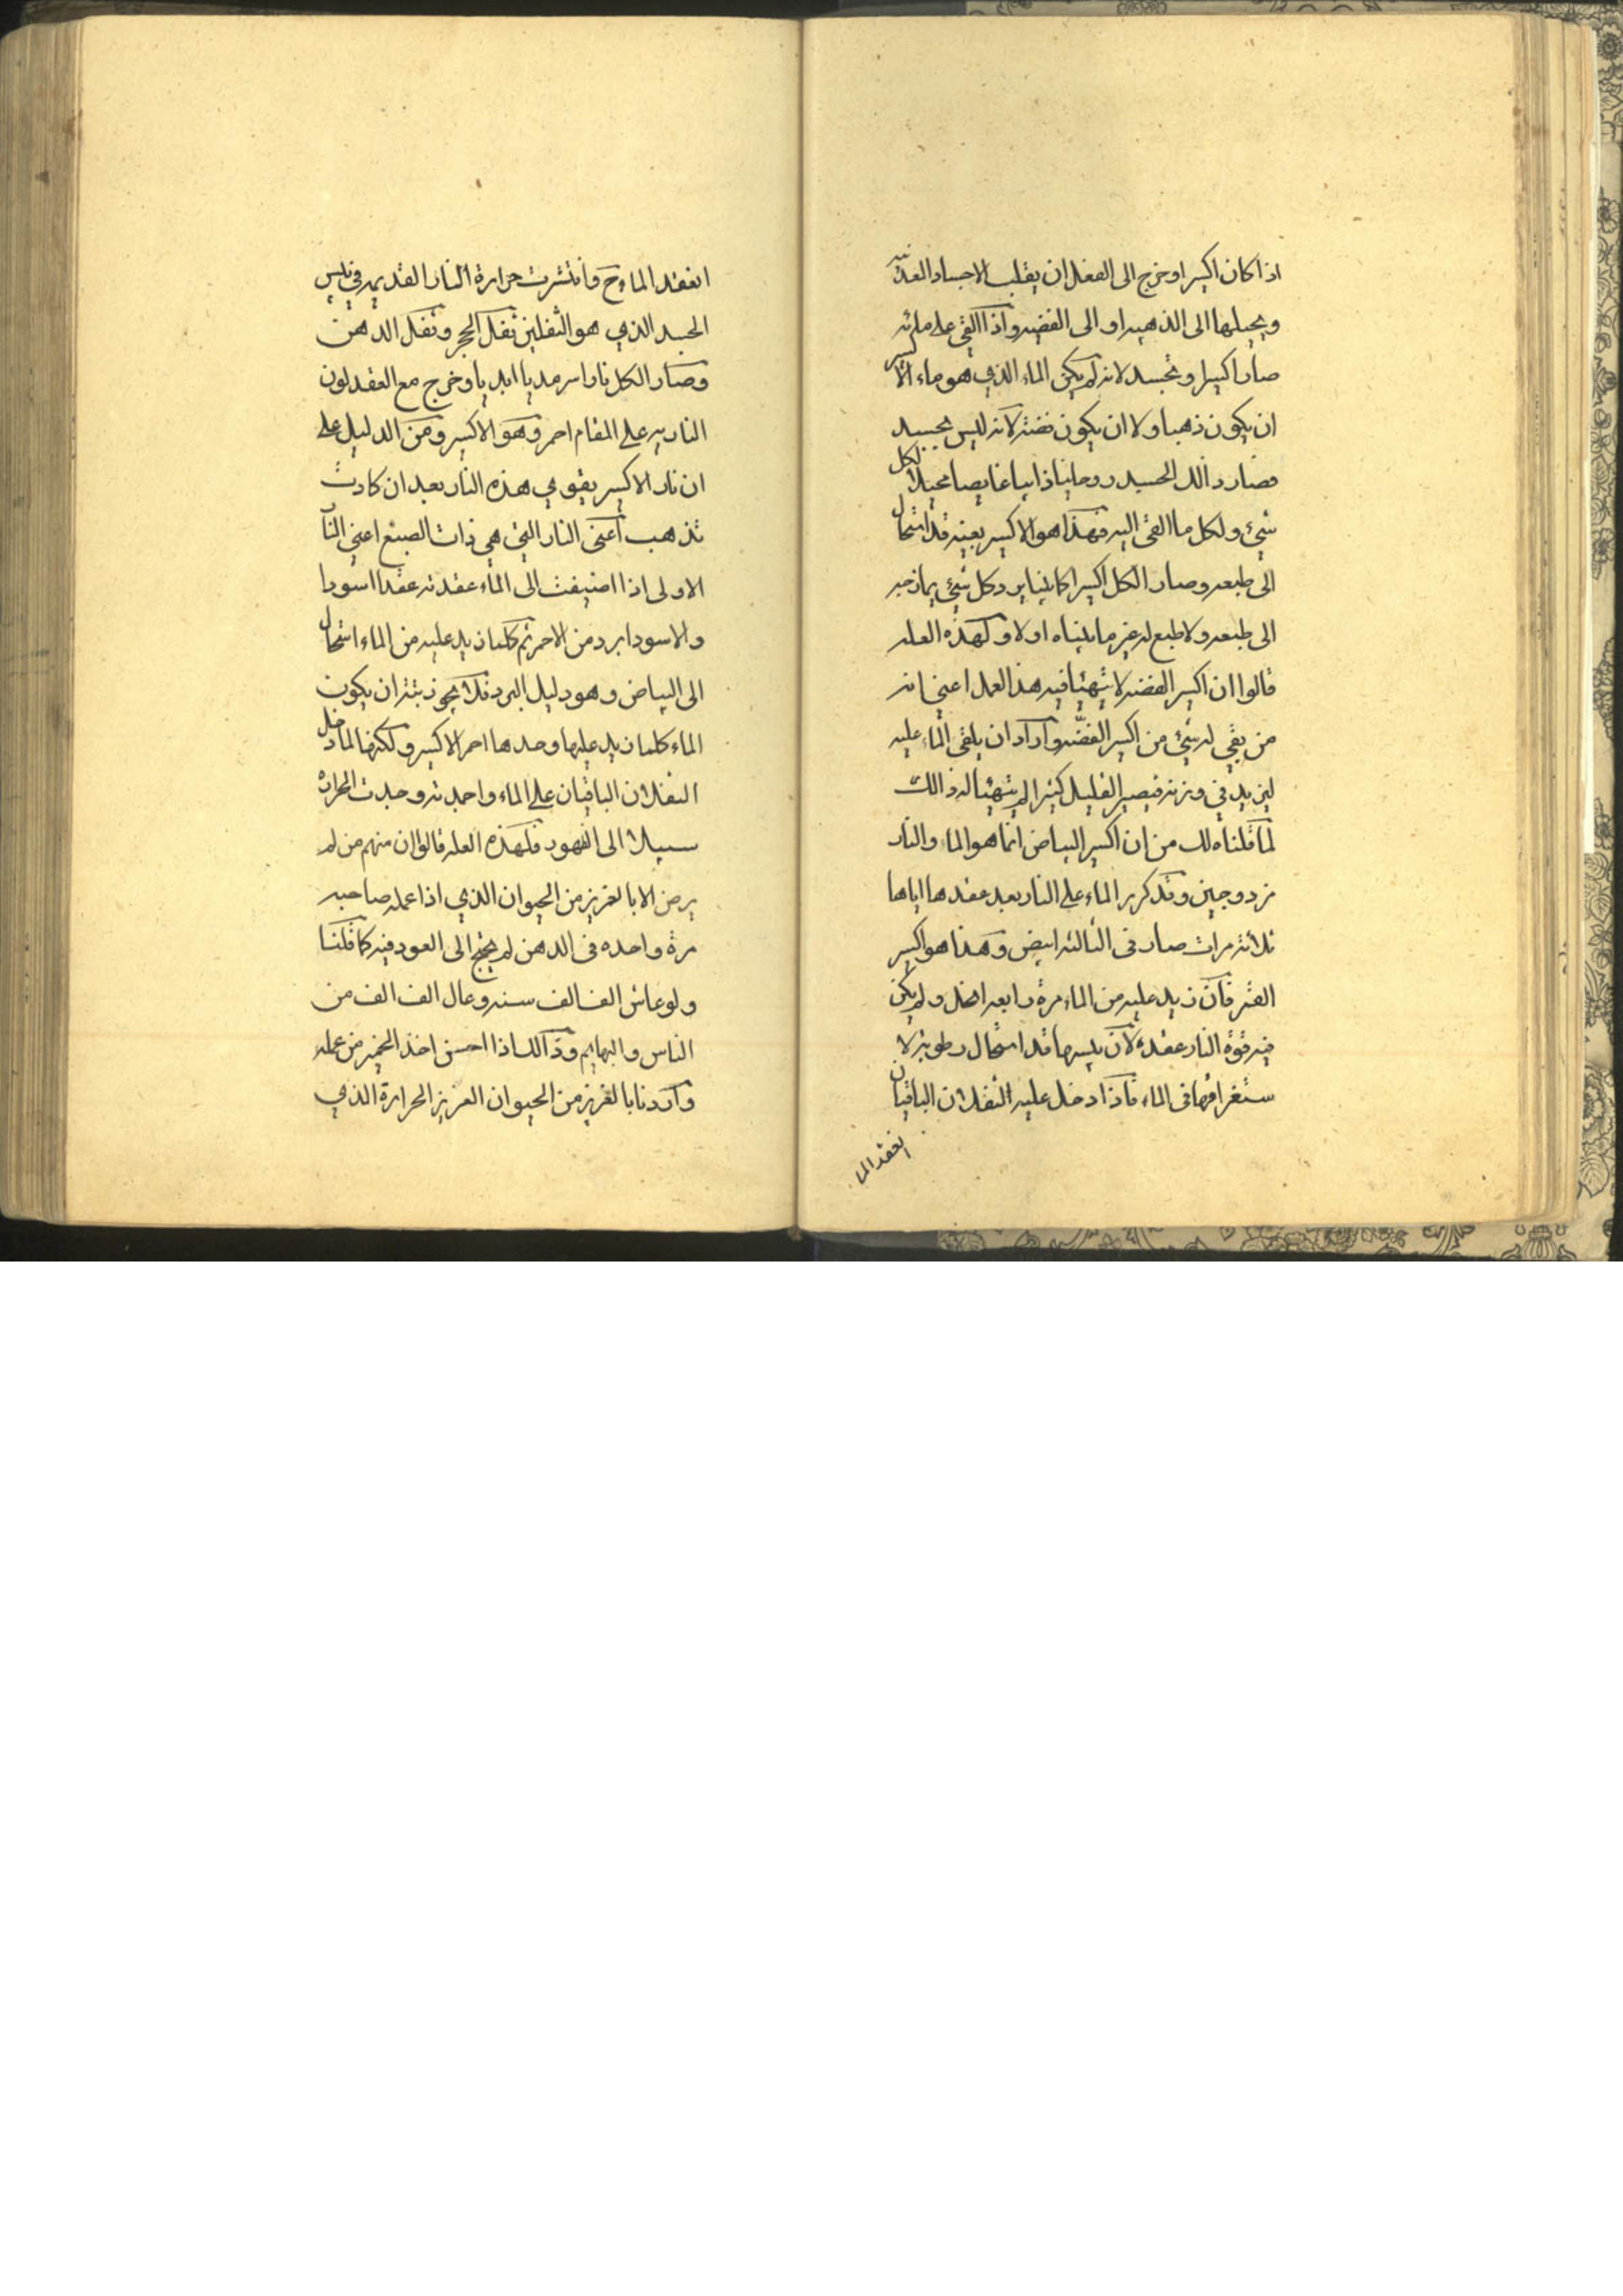 اذا كان اكسيرا وخرج الى الفعل ان يقلب الاجساد المعدنيه
ويحيلها الى الذهبيه او الى الفضيه واذا القى على مائه
صار اكسيرا وتجسد لانه لم يكن الماء الذي هو ماء الاكسير
ان يكون ذهبا ولا ان يكون فضة لانه ليس بجسد
فصار ذالك الجسد روحانيا ذائبا غايصا محيلا لكل
شيئ ولكل ما القى اليه فهذا هو الاكسير بعينه قد استحال
الى طبعه وصار الكل اكسيرا كما بينا يرد كل شيئ يمازجه
الى طبعه ولا طبع له غير ما بيناه اولا ولهذه العله
قالوا ان اكسير الفضه لا يتهيأ فيه هذا العمل اعني انه
من بقي له شيئ من اكسير الفضّه واراد ان يلقى الماء عليه
ليزيد في وزنه فيصير القليل كثيرا لم يتهيأ له ذالك
لما قلناه لك من ان اكسير البياض انما هو الماء والنار
مزدوجين وقد كرر الماء على النار بعد عقدها اياها
ثلاثة مرات صار فى الثالثه ابيض وهذا هو اكسير
القمر فان زيد عليه من الماء مرة رابعه انحل ولم يكن
فيه قوة النار عقده لان يبسها قد استحال رطوبة لا
ستغراقها فى الماء فاذا دخل عليه الثفلان الباقيان
انعقد الما
انعقد الماء ح وانتشرت حرارة النار القديمه في يابس
الجسد الذي هو الثفلين ثفل الحجر وثفل الدهن
وصار الكل نارا سرمديا ابديا وخرج مع العقد لون
الناريه على المقام احمر وهو الاكسير ومن الدليل على
ان نار الاكسير يقوي هذه النار بعد ان كادت
تذهب اعنى النار التي هي ذات الصبغ اعني النار
الاولى اذا اضيفت الى الماء عقدته عقدا اسودا
والاسود ابرد من الاحمر ثم كلما زيد عليه من الماء استحال
الى البياض وهو دليل البرد فلا يجوز بتة ان يكون
الماء كلما زيد عليها وحدها احمر الاكسير ولكنها لما دخل
الثفلان الباقيان على الماء واجمدته وجدت الحرارة
سبيلا الى الظهور فلهذه العله قالوا ان منهم من لم
يرض الا بالغريز من الحيوان الذي اذا عمله صاحبه
مرة واحده فى الدهن لم يحتج الى العود فيه كما قلنا
ولو عاش الف الف سنه وعال الف الف من
الناس والبهايم وذالك اذا احسن اخذ الخمير من عمله
واردنا بالغريز من الحيوان الغريز الحرارة الذي